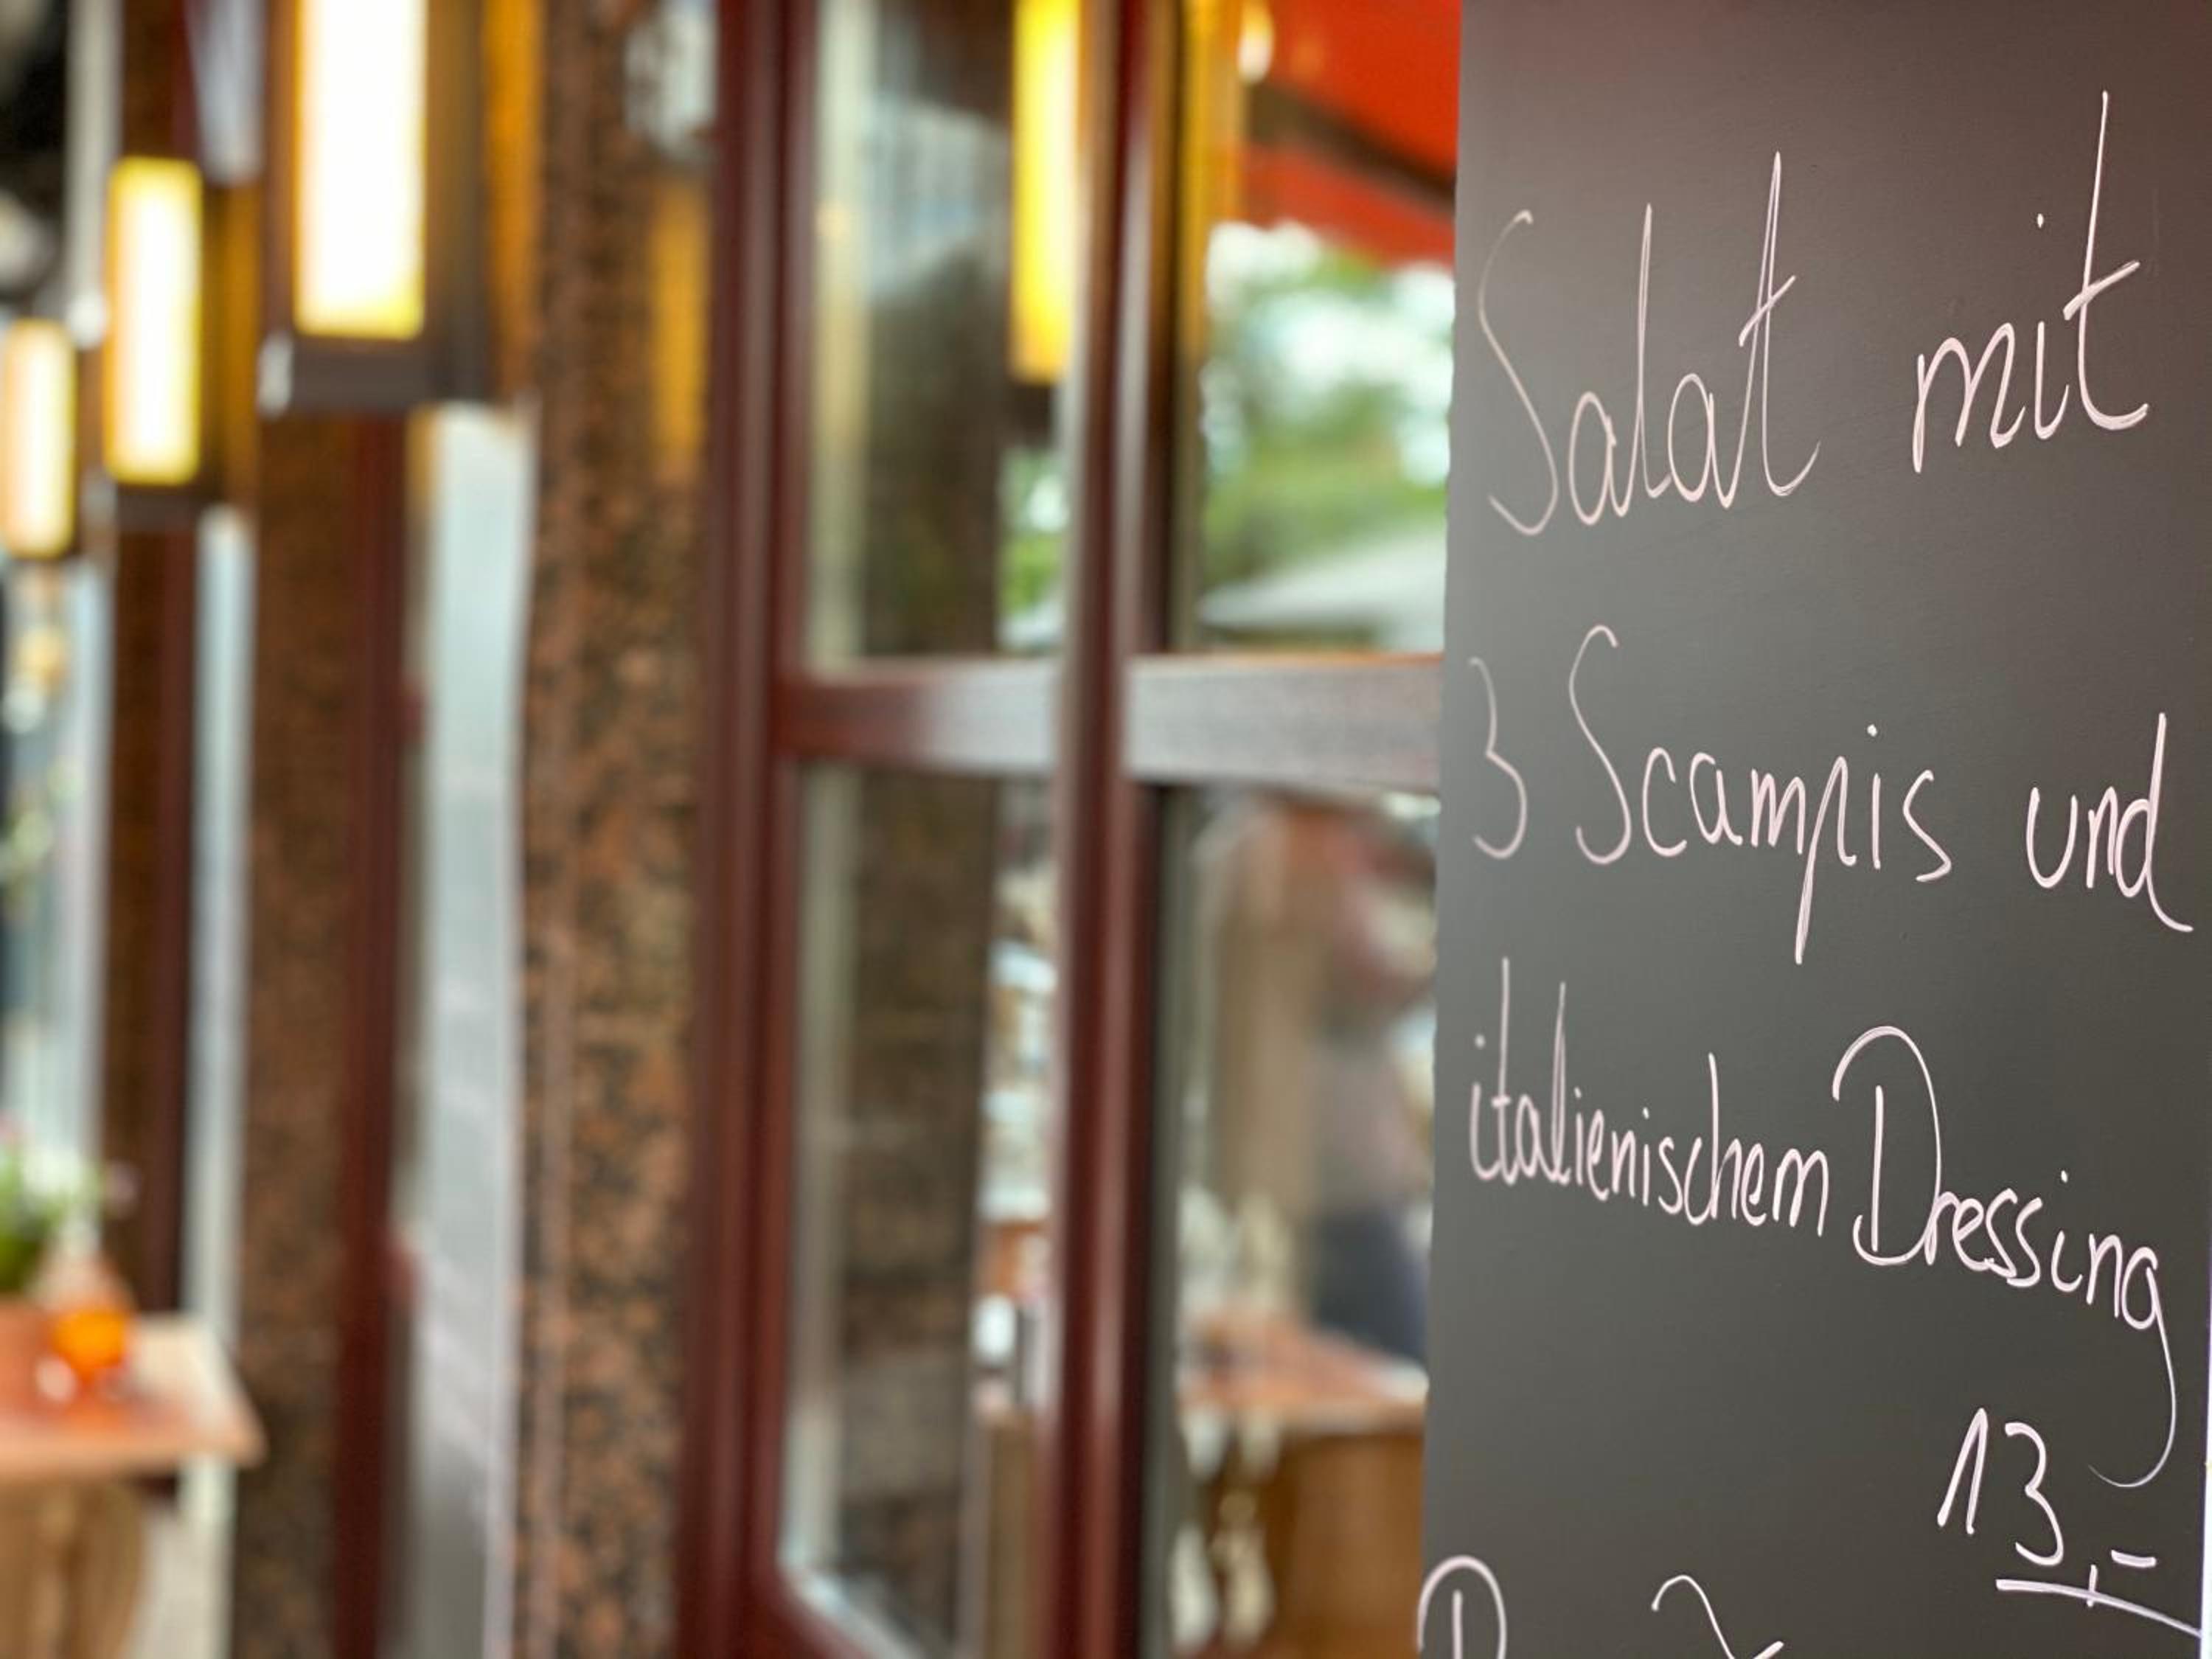 Salat mit
3 Scampis und
italienischem Dressing
13,-